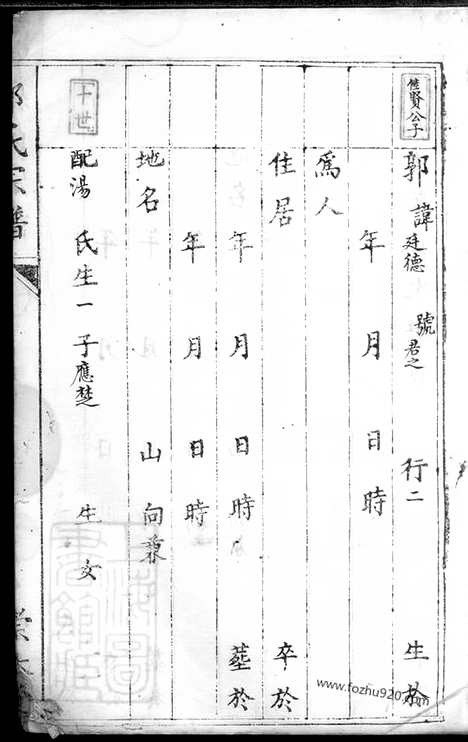 佳賢公子
郭 諱廷德 號君之 行二 生於
年 月 日 時
為人
住居 卒於
年 月 日 時 塟於
年 月 日 時
地名 山 向
配湯 氏生一 子應楚 生 女
十世
氏宗譜
www.fozhu920.com